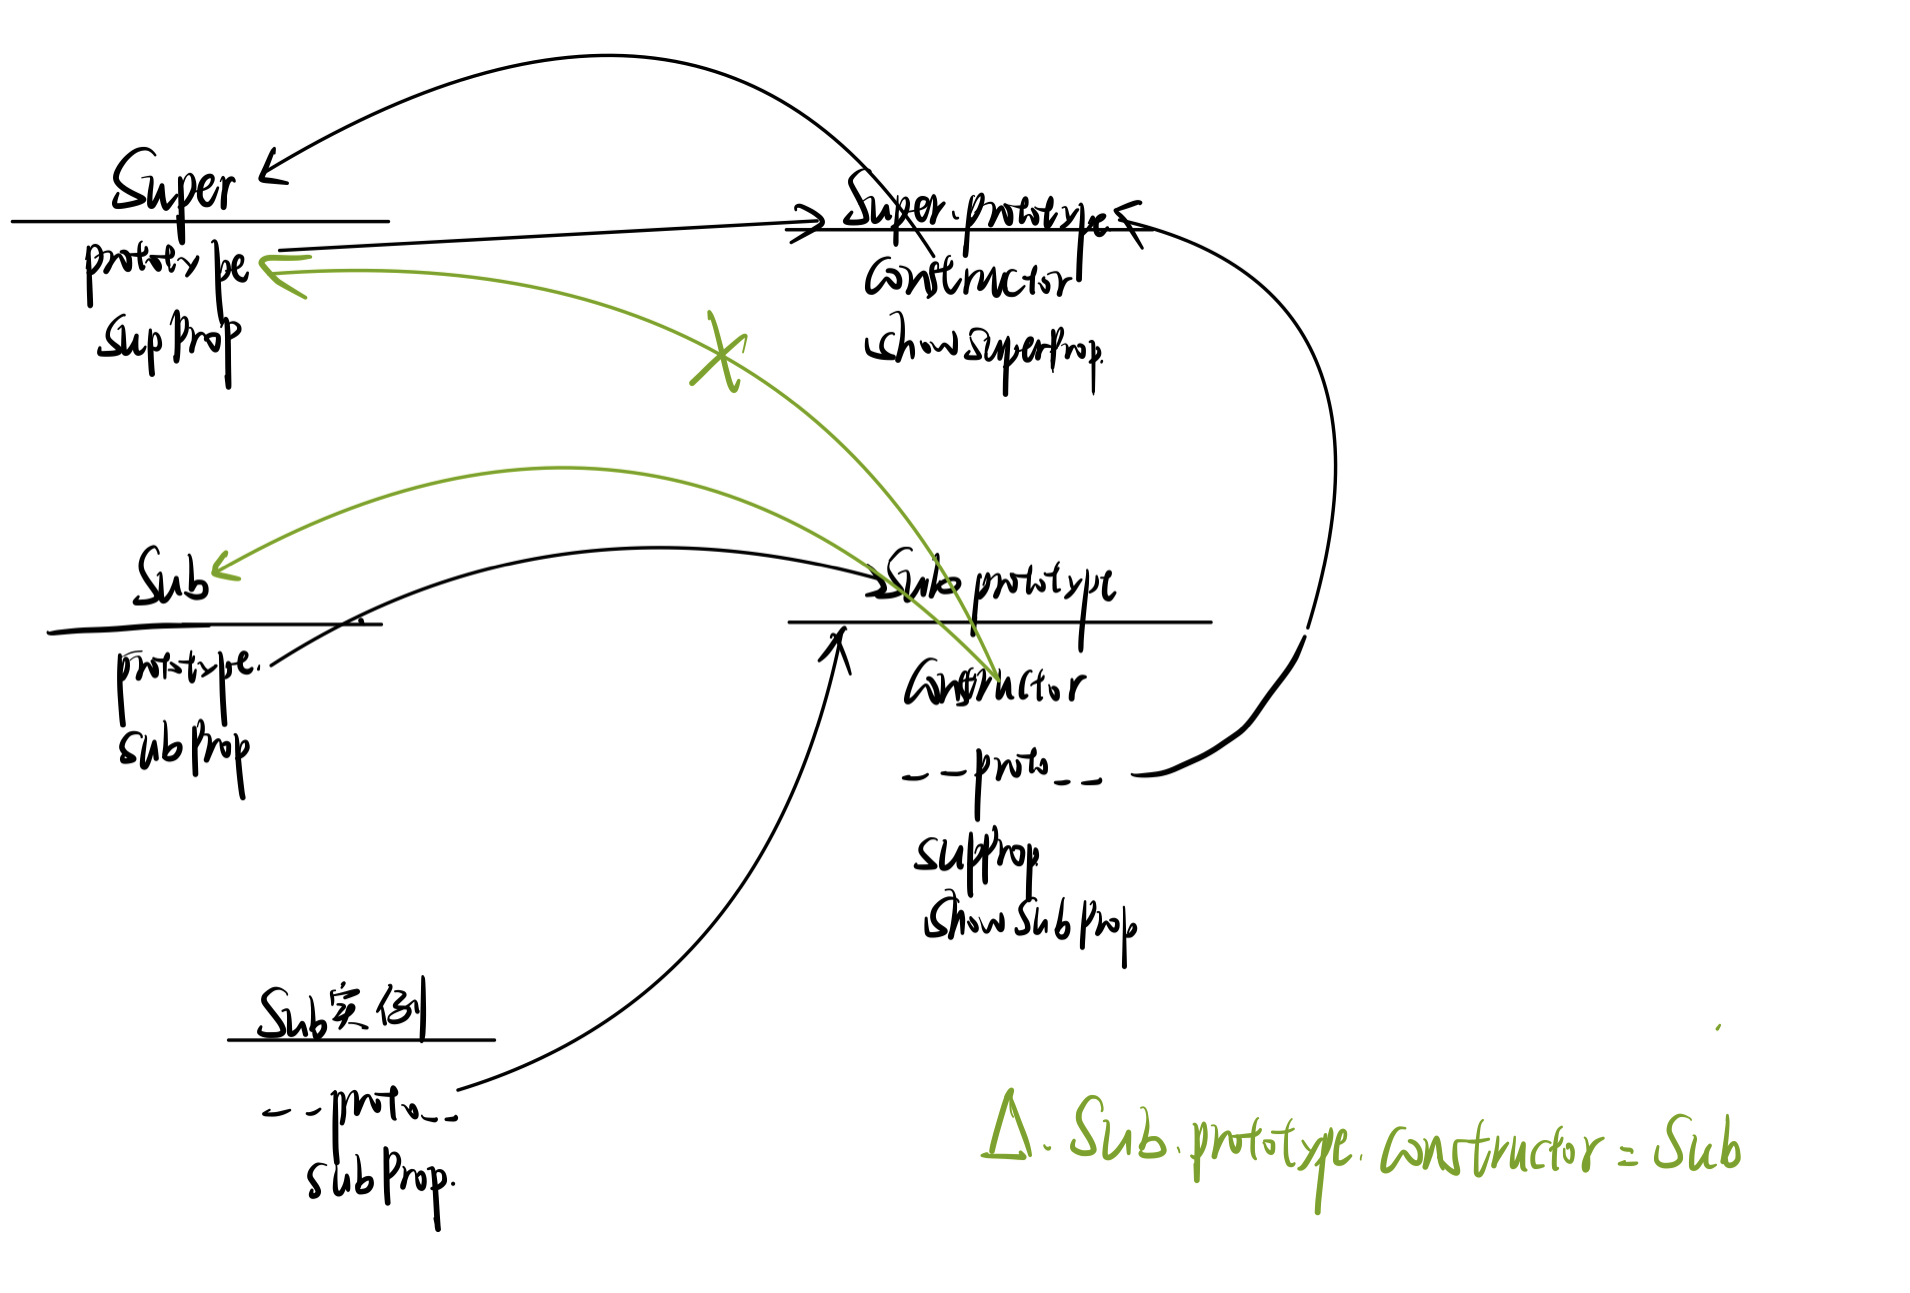 Super
prototype
supProp
Super.prototype
constructor
showSuperProp.
Sub
prototype.
subProp
Sub prototype
constructor
--proto--
supProp
showSubProp
Sub实例
--proto--
subProp.
Δ.Sub.prototype.constructor=Sub